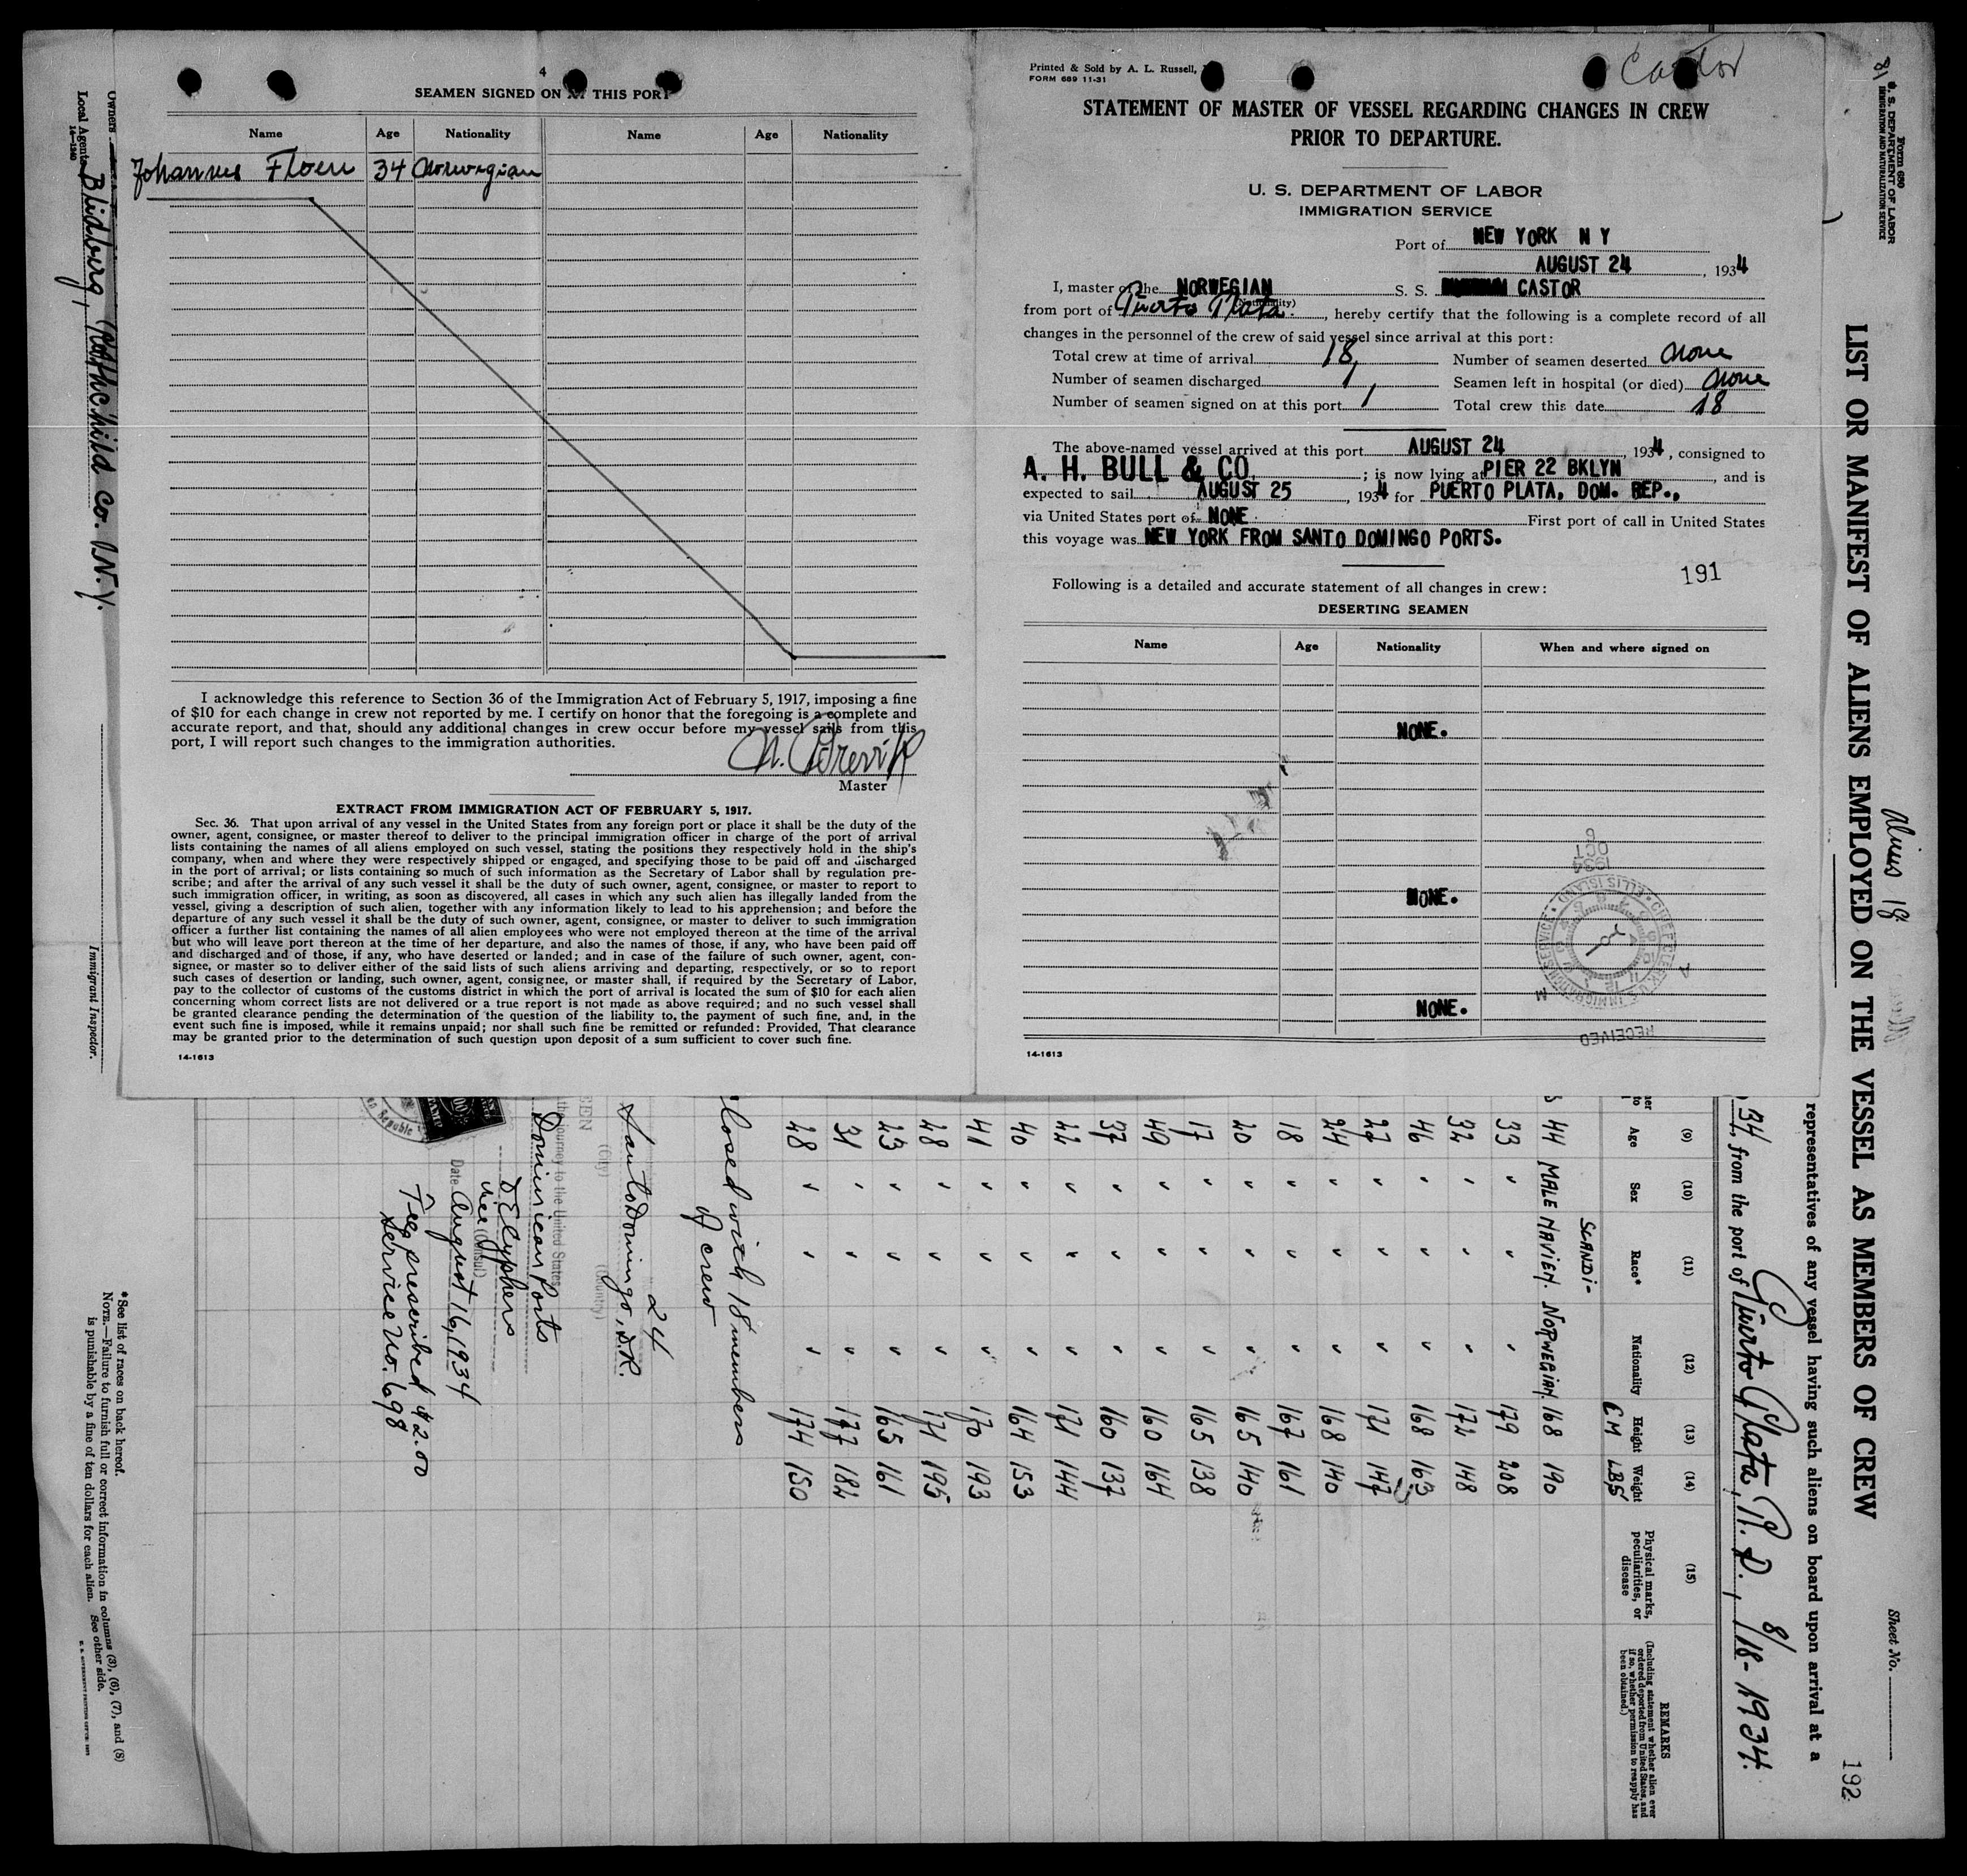 4
SEAMEN SIGNED ON AT THIS PORT
Name Age Nationality Name Age Nationality
Johannes Floen 34 Norwegian
I acknowledge this reference to Section 36 of the Immigration Act of February 5, 1917, imposing a fine
of $10 for each change in crew not reported by me. I certify on honor that the foregoing is a complete and
accurate report, and that, should any additional changes in crew occur before my vessel sails from this
port, I will report such changes to the immigration authorities.
Master
EXTRACT FROM IMMIGRATION ACT OF FEBRUARY 5, 1917.
Sec. 36. That upon arrival of any vessel in the United States from any foreign port or place it shall be the duty of the
owner, agent, consignee, or master thereof to deliver to the principal immigration officer in charge of the port of arrival
lists containing the names of all aliens employed on such vessel, stating the positions they respectively hold in the ship's
company, when and where they were respectively shipped or engaged, and specifying those to be paid off and discharged
in the port of arrival; or lists containing so much of such information as the Secretary of Labor shall by regulation pre-
scribe; and after the arrival of any such vessel it shall be the duty of such owner, agent, consignee, or master to report to
such immigration officer, in writing, as soon as discovered, all cases in which any such alien has illegally landed from the
vessel, giving a description of such alien, together with any information likely to lead to his apprehension; and before the
departure of any such vessel it shall be the duty of such owner, agent, consignee, or master to deliver to such immigration
officer a further list containing the names of all alien employees who were not employed thereon at the time of the arrival
but who will leave port thereon at the time of her departure, and also the names of those, if any, who have been paid off
and discharged and of those, if any, who have deserted or landed; and in case of the failure of such owner, agent, con-
signee, or master so to deliver either of the said lists of such aliens arriving and departing, respectively, or so to report
such cases of desertion or landing, such owner, agent, consignee, or master shall, if required by the Secretary of Labor,
pay to the collector of customs of the customs district in which the port of arrival is located the sum of $10 for each alien
concerning whom correct lists are not delivered or a true report is not made as above required; and no such vessel shall
be granted clearance pending the determination of the question of the liability to the payment of such fine, and, in the
event such fine is imposed, while it remains unpaid; nor shall such fine be remitted or refunded: Provided, That clearance
may be granted prior to the determination of such question upon deposit of a sum sufficient to cover such fine.
14-1613
Printed & Sold by A. L. Russell,
FORM 689 11-31
Castor
STATEMENT OF MASTER OF VESSEL REGARDING CHANGES IN CREW
PRIOR TO DEPARTURE.
U. S. DEPARTMENT OF LABOR
IMMIGRATION SERVICE
Port of NEW YORK N Y
AUGUST 24, 1934
I, master of the NORWEGIAN S. S. CASTOR
(Nationality)
from port of Puerto Plata, hereby certify that the following is a complete record of all
changes in the personnel of the crew of said vessel since arrival at this port:
Total crew at time of arrival 18, Number of seamen deserted None
Number of seamen discharged 1, Seamen left in hospital (or died) None
Number of seamen signed on at this port 1 Total crew this date 18
The above-named vessel arrived at this port AUGUST 24, 1934, consigned to
A. H. BULL & CO. ; is now lying at PIER 22 BKLYN, and is
expected to sail AUGUST 25, 1934 for PUERTO PLATA, DOM. REP.,
via United States port of NONE First port of call in United States
this voyage was NEW YORK FROM SANTO DOMINGO PORTS.
191
Following is a detailed and accurate statement of all changes in crew:
DESERTING SEAMEN
Name Age Nationality When and where signed on
NONE.
NONE.
NONE.
RECEIVED
OCT 6 1934
14-1613
Form 680
U. S. DEPARTMENT OF LABOR
IMMIGRATION AND NATURALIZATION SERVICE
Sheet No.
192
LIST OR MANIFEST OF ALIENS EMPLOYED ON THE VESSEL AS MEMBERS OF CREW
representatives of any vessel having such aliens on board upon arrival at a
34, from the port of Puerto Plata, R. D., 8/18-1934.
(9) (10) (11) (12) (13) (14) (15)
Age Sex Race* Nationality Height Weight Physical marks, peculiarities, or disease
REMARKS
(Including statement whether alien ever ordered deported from United States, and if so, whether permission to reapply has been obtained.)
CM LBS
44 MALE SCANDINAVIEN. NORWEGIAN. 168 190
33 " " " 179 208
32 " " " 172 148
46 " " " 168 163
27 " " " 171 147
24 " " " 168 140
18 " " " 167 161
20 " " " 165 140
17 " " " 165 138
49 " " " 160 164
37 " " " 160 137
22 " " " 171 144
40 " " " 164 153
41 " " " 170 193
28 " " " 171 195
23 " " " 165 161
31 " " " 177 182
28 " " " 174 150
losed with 18 members
of crew
24
Santo Domingo, D.R.
(City) (Country)
the journey to the United States
Dominican Ports
Vice (Consul)
Date August 16, 1934
Fee prescribed $2.00
Service No. 698
*See list of races on back hereof.
NOTE.—Failure to furnish full or correct information in columns (3), (6), (7), and (8)
is punishable by a fine of ten dollars for each alien. See other side.
Owners
Local Agents Blidberg, Rothchild Co. N.Y.
14-1240
Immigrant Inspector.